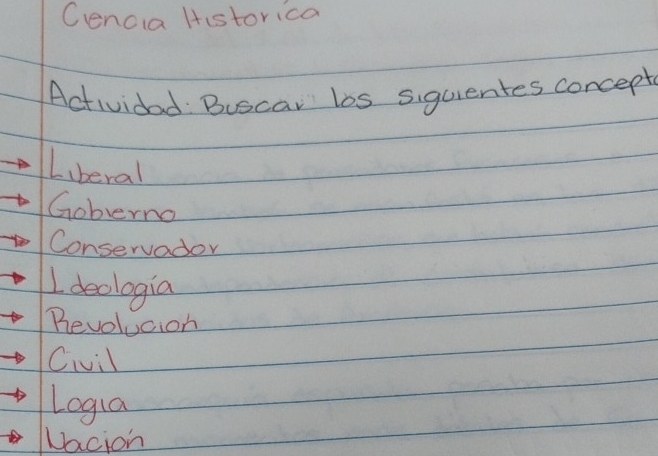 Ciencia Historica
Actividad: Buscar los siguientes concepto
→ Liberal
→ Gobierno
→ Conservador
→ Ideología
→ Revolucion
→ Civil
→ Logia
→ Nación